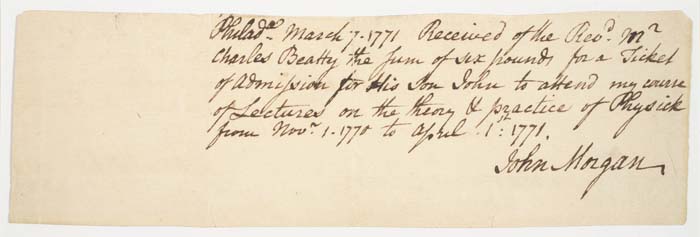 Philad.ª March 7. 1771 Received of the Rev.d M.r
Charles Beatty the sum of six pounds for a Ticket
of admission for His Son John to attend my course
of Lectures on the theory & practice of Physick
from Nov.r 1. 1770 to April 1.st 1771.
John Morgan